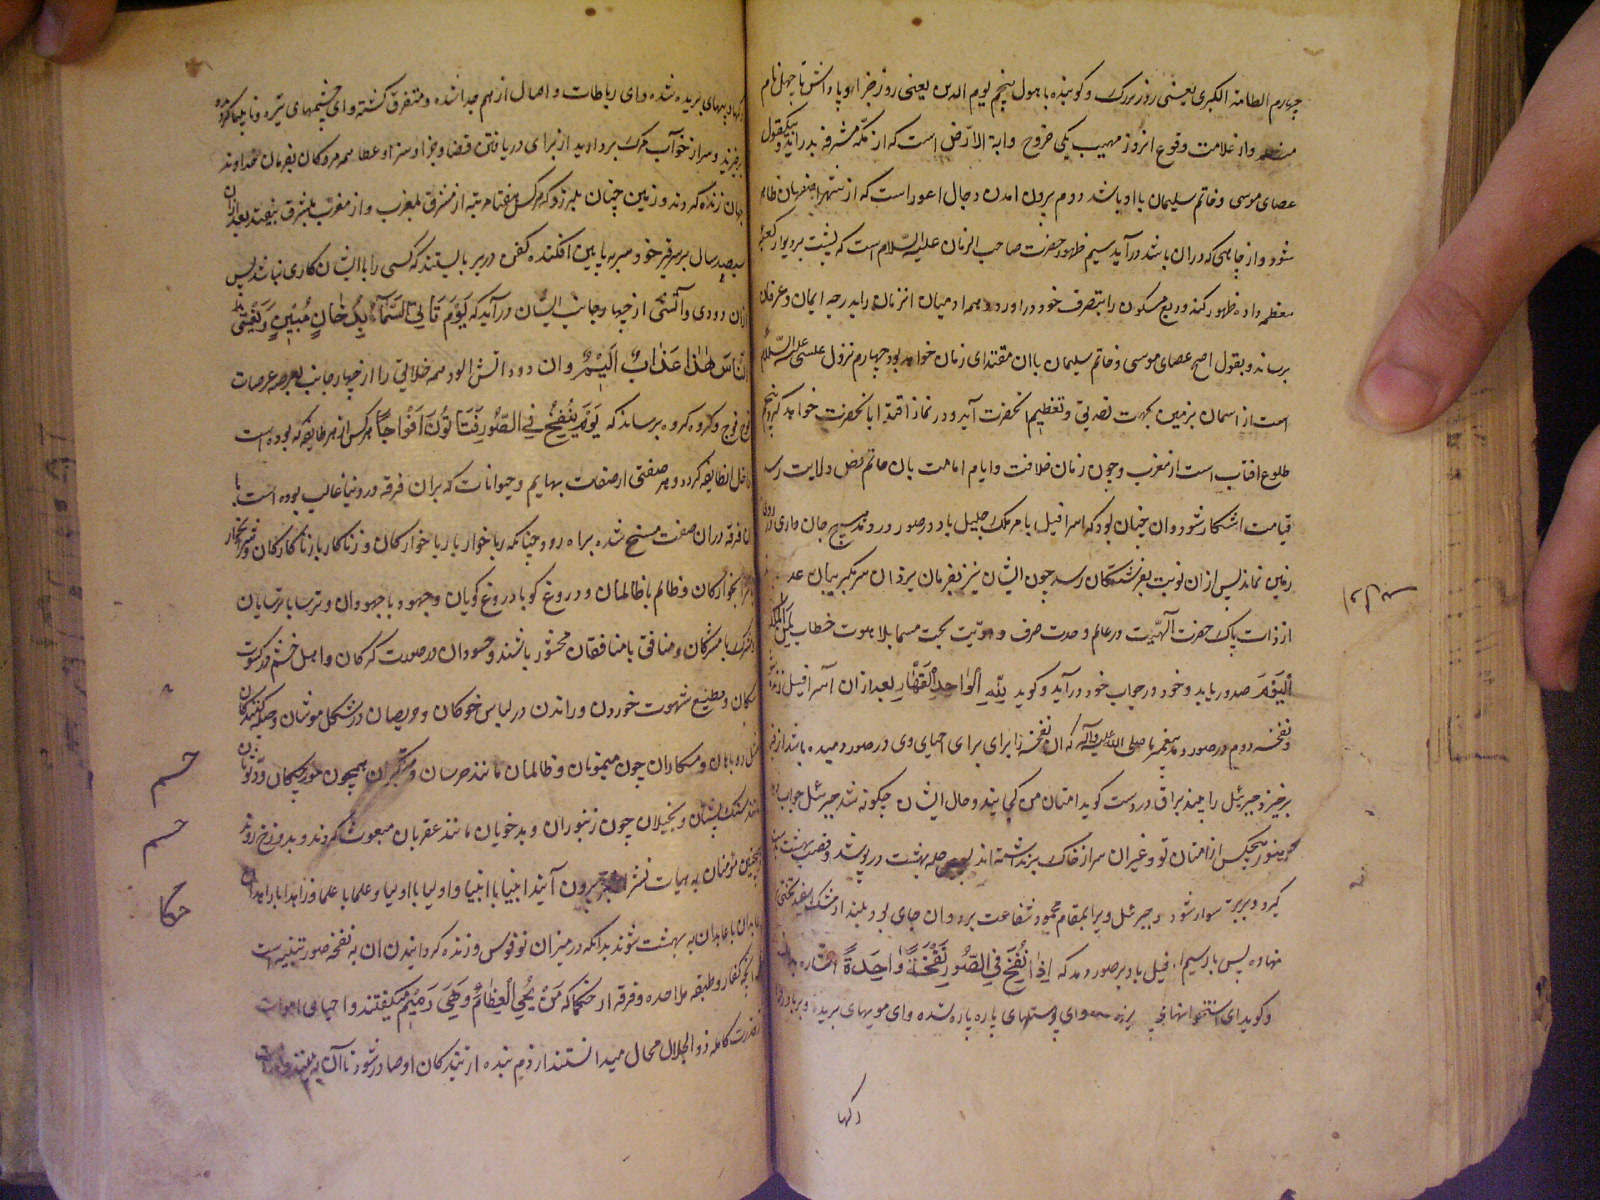 چهارم الطامة الکبری یعنی روز بزرک و کوبنده باهول پنجم یوم الدین یعنی روز جزا و پاداش تا چهل نام
وار علامت وقوع انروز مهیب یکی خروج دابة الارض است که از مکه مشرفه بدر آید و بیکقول
عصای موسی و خاتم سلیمان با او باشد دوم برون امدن دجال اعور است که از شهر اصفهان ظاهر
شود و از چاهی که در ان باشد در آید سیم ظهور حضرت صاحب الزمان علیه السلام است که پشت بر دیوار کعبه
معظمه داده ظهور کند و ربع مسکون را بتصرف خود در اورد و همه ادمیان انزمان را بدرجه ایمان و عرفان
برساند و بقول اصح عصای موسی و خاتم سلیمان با ان مقتدای زمان خواهد بود چهارم نزول عیسی علیه السلام
است از اسمان بزمین بجهت تصدیق و تعظیم انحضرت آید و در نماز اقتدا بانحضرت خواهد کرد پنجم
طلوع افتاب است از مغرب و چون زمان خلافت و ایام امامت بان خاتم فضل و ولایت رسد
قیامت اشکار شود و ان چنان بود که اسرافیل بامر ملک جلیل باد در صور دمد و هیچ جان داری در روی
زمین نماند پس از ان نوبت بفرشتکان رسد چون ایشان نیز بفرمان یزدان سر بکریبان عدم
از ذات پاک حضرت الهیت در عالم وحدت صرف و هویت بحت مسما بلاهوت خطاب لمن الملک
الیوم صدور یابد و خود در جواب خود در آید و کوید لله الواحد القهار بعد از ان اسرافیل زنده
و نفخه دوم در صور دمد پیغمبر ما صلی الله علیه و آله که ان نفخه را برای برای احیای وی در صور دمیده باشند از
بر خیزد و جبرئیل را بیند براق در دست کوید امتان من کجایند و حال ایشان چکونه شد جبرئیل جواب
که هنوز هیچکس از امتان تو و غیر ان سر از خاک بر نداشته اند پس حله بهشت در پوشد و
کیرد و بر سوار شود و جبرئیل ویرا بمقام محمود شفاعت برد و ان جای بود بلند از مشک
نهاده پس بار سیم اسرافیل باد بر صور دمد که اذا نفخ فی الصور نفخة واحدة اشاره
و کوید ای استخوانهای وای پوستهای پاره پاره شده وای مویهای بریده
رکها
رکها و پیهای بریده شده وای رباطات و اوصال از هم جدا شده و متفرق کشته وای چشمهای تیره و نابینا کردیده
برخیزید و سر از خواب مرک بردارید از برای دریافتن قضا و جزا و سزا و عطا همه مردکان بفرمان خداوند
جهان زنده کردند و زمین چنان بلرزد که هر کس هفتاد مرتبه از مشرق بمغرب و از مغرب بمشرق بیفتد بعد از ان
سیصد سال بر سر قبر خود سر به پایین افکنده کفن در بر بایستند که کسی را با ایشان کاری نباشد پس
از ان دودی و آتشی از چهار جانب ایشان در آید که یوم تاتی السماء بدخان مبین و یغشی
الناس هذا عذاب الیم و ان دود اتش الود همه خلایق را از چهار جانب بعرصه عرصات
فوج فوج و کروه کروه برساند که یوم ینفخ فی الصور فتاتون افواجا هر کس از هر طایفه که بوده است
داخل انطایفه کردد و هر صفتی از صفات بهایم و حیوانات که بران فرقه در دنیا غالب بوده است
ان فرقه دران صفت مسخ شده براه رود چنانکه ربا خوار با ربا خوارکان و زناکار با زناکارکان و
با و ظالم با ظالمان و دروغ کو با دروغ کویان و جهود با جهودان و ترسا با ترسایان
و مشرک با مشرکان و منافق با منافقان محشور باشند و حسودان در صورت کرکان و اهل خشم در کسوت
سکان و مطیع شهوت خوردن و راندن در لباس خوکان و حریصان در شکل موشان و
شکل روباهان و مکاران چون میمونان و ظالمان مانند خرسان و متکبران همچون
مانند سنک پشتان و بخیلان چون زنبوران و بد خویان مانند عقربان مبعوث کردند و بدوزخ روند
همچنین مؤمنان به هیات بشر از قبر بیرون آیند انبیا با انبیا و اولیا با اولیا و علما با علما و زاهدان با زاهدان
عابدان با عابدان به بهشت شوند بدانکه در میزان نفوس و زنده کردانیدن ان به نفخه صور تنبیه است
بر انکه کفار و طبقه ملاحده و فرقه از حکما که من یحیی العظام و هی رمیم میکفتند و احیای اموات
از قدرت کامله ذو الجلال محال میدانستند از ذمیمه از بندکان او صادر شود تا آن
حسم
حسم
حکا